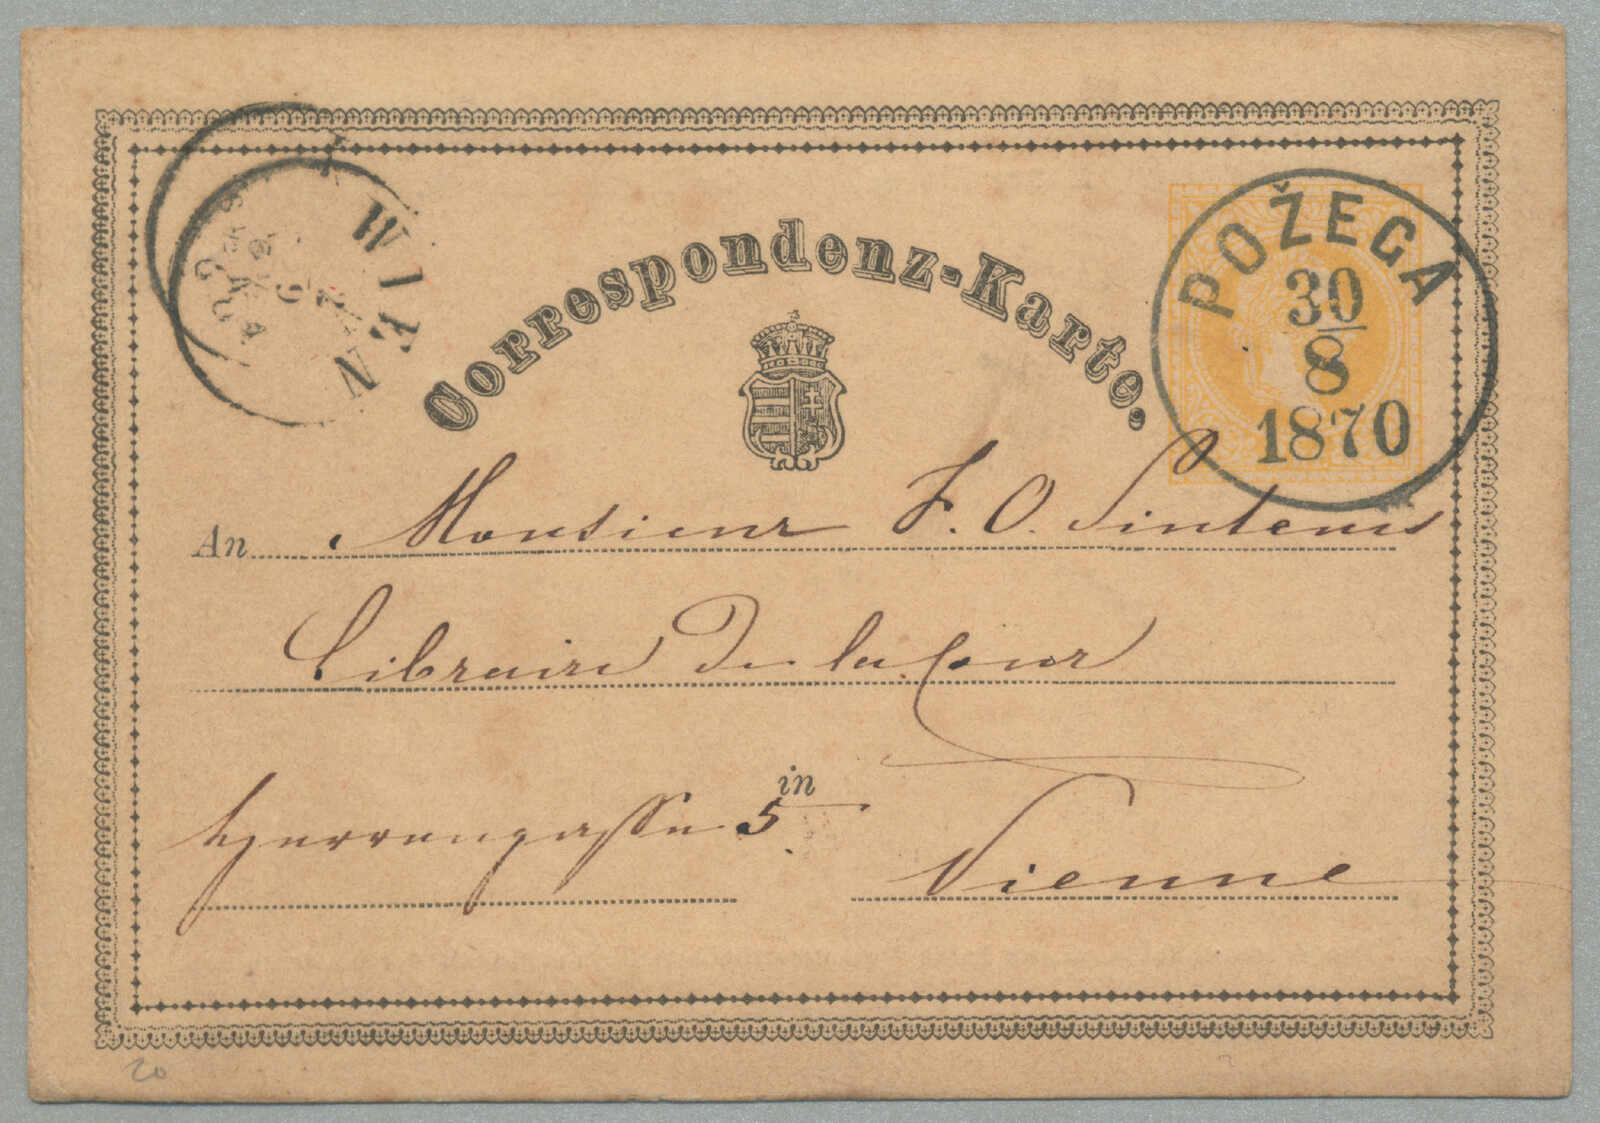 WIEN
Correspondenz-Karte.
POŽEGA
30
8
1870
An Monsieur F. O. Sintenis
Libraire de la Cour
in
Herrengasse 5.
Vienne
20